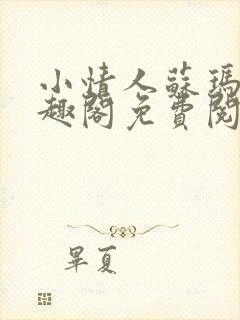 小情人蘇瑪
趣閣免費閱
畢夏